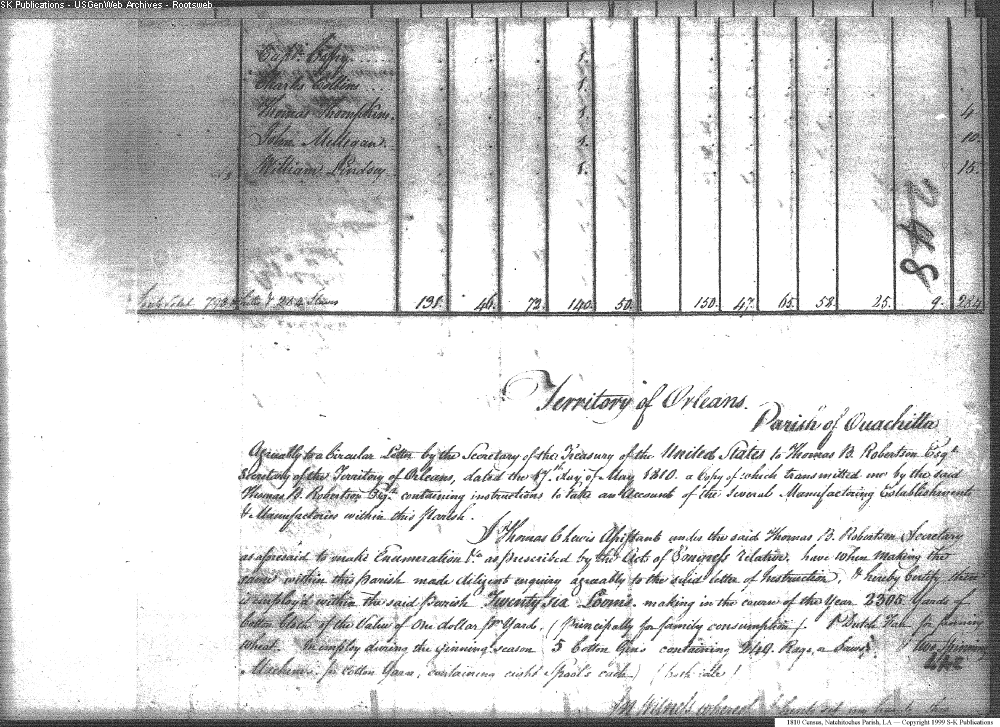 SK Publications - USGenWeb Archives - Rootsweb
Charles Collins
Thomas Thompkins. 4
John Milligan. 10.
William Lindsey 15.
248
798 & 284 Slaves 138. 46. 72. 140. 50. 150. 47. 65. 58. 25. 9. 284
Territory of Orleans.
Parish of Ouachitta
Agreably to a Circular Letter by the Secretary of the Treasury of the United States to Thomas B. Robertson Esqr.
Secretary of the Territory of Orleans, dated the 17th. day of May 1810. a Copy of which transmitted me by the said
Thomas B. Robertson Esqr. containing instructions to take an Account of the several Manufacturing Establishments
& Manufactories within this Parish.
I Thomas C Lewis Assistant under the said Thomas B. Robertson Secretary
as aforesaid to make Enumeration &c. as prescribed by the Acts of Congress relative, have when making the
same within this parish made diligent enquiry agreably to the said letter of Instruction, & hereby Certify there
is employ'd within the said parish Twenty six Looms. making in the course of the Year 2305 Yards of
Cotton Cloth of the Value of One dollar pr. Yard. (principally for family consumption) 1 Dutch Fan for
wheat. In employ during the ginning season 5 Cotton Gins containing 249 Rags, or Saws. & two spinning
Machines for Cotton Yarn, containing eight Spools each
In Witness whereof I
1810 Census, Natchitoches Parish, LA — Copyright 1999 S-K Publications